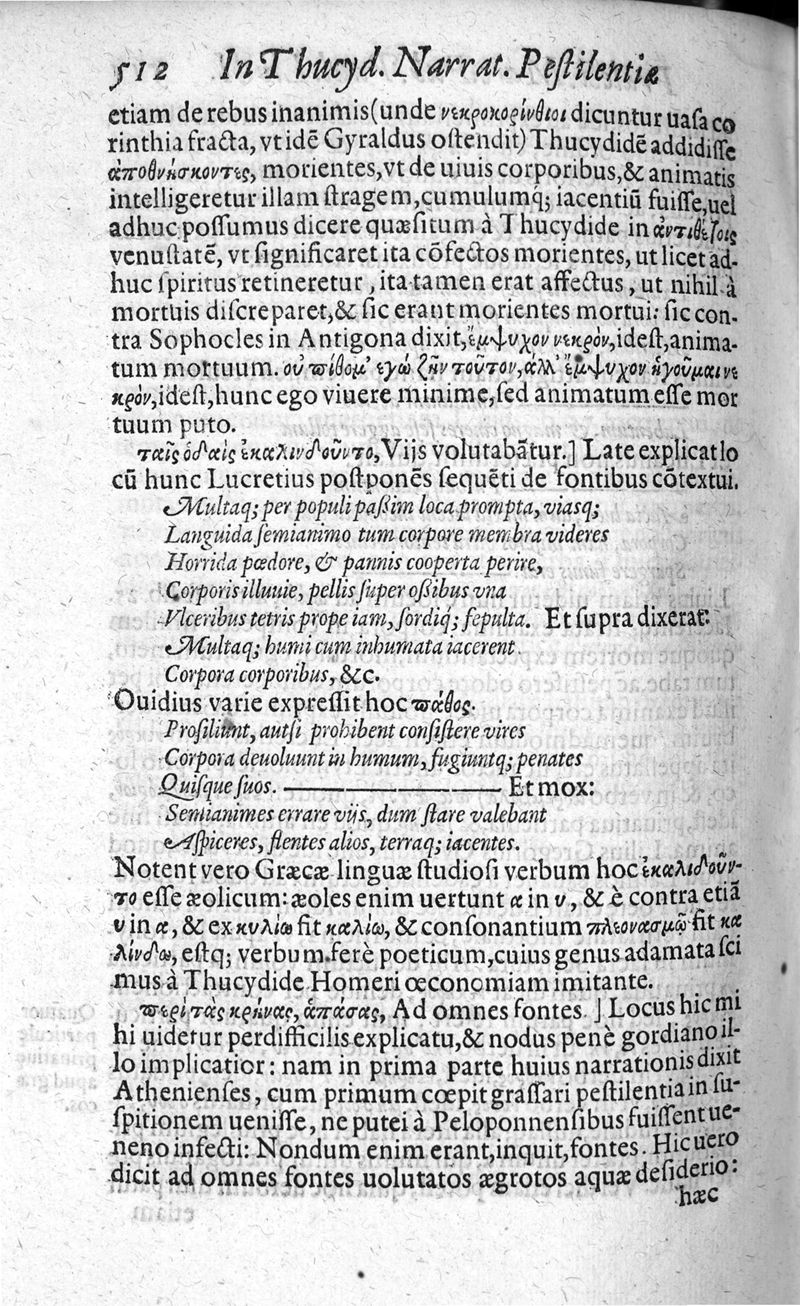 512 In Thucyd. Narrat. Pestilentiæ
etiam de rebus inanimis(unde νεκροκορίνθιοι dicuntur uasa co
rinthia fracta, vt idē Gyraldus ostendit) Thucydidē addidisse
ἀποθνήσκοντες, morientes, vt de uiuis corporibus, & animatis
intelligeretur illam stragem, cumulumq́; iacentiū fuisse, uel
adhuc possumus dicere quæsitum à Thucydide in ἀντιθέτοις
venustatē, vt significaret ita cōfectos morientes, ut licet ad-
huc spiritus retineretur, ita tamen erat affectus, ut nihil à
mortuis discreparet, & sic erant morientes mortui: sic con-
tra Sophocles in Antigona dixit, ἔμψυχον νεκρὸν, idest, anima-
tum mortuum. οὐ πίθομ' ἐγὼ ζῆν τοῦτον, ἀλλ' ἔμψυχον ἡγοῦμαι νε
κρόν, idest, hunc ego viuere minime, sed animatum esse mor
tuum puto.
ταῖς ὁδαὶς ἐκαλινδοῦντο, Vijs volutabātur.] Late explicat lo
cū hunc Lucretius postponēs sequēti de fontibus cōtextui.
Multaq; per populi passim loca prompta, viasq;
Languida semianimo tum corpore membra videres
Horrida pœdore, & pannis cooperta perire,
Corporis illuuie, pellis super ossibus vna
Vlceribus tetris prope iam, sordiq́; sepulta. Et supra dixerat:
Multaq; humi cum inhumata iacerent
Corpora corporibus, &c.
Ouidius varie expressit hoc πάθος.
Prosiliunt, aut si prohibent consistere vires
Corpora deuoluunt in humum, fugiuntq; penates
Quisque suos. ——— Et mox:
Semianimes errare vijs, dum stare valebant
Aspiceres, flentes alios, terraq; iacentes.
Notent vero Græcæ linguæ studiosi verbum hoc ἐκαλιδοῦν-
το esse æolicum: æoles enim uertunt α in υ, & è contra etiā
υ in α, & ex κυλίω fit καλίω, & consonantium πλεονασμῷ fit κα
λίνδω, estq; verbum ferè poeticum, cuius genus adamata sci
mus à Thucydide Homeri œconomiam imitante.
περὶ τὰς κρήνας, ἁπάσας, Ad omnes fontes.] Locus hic mi
hi uidetur perdifficilis explicatu, & nodus penè gordiano il-
lo implicatior: nam in prima parte huius narrationis dixit
Athenienses, cum primum cœpit grassari pestilentia in su-
spitionem uenisse, ne putei à Peloponnensibus fuissent ue-
neno infecti: Nondum enim erant, inquit, fontes. Hic uero
dicit ad omnes fontes uolutatos ægrotos aquæ desiderio:
hæc